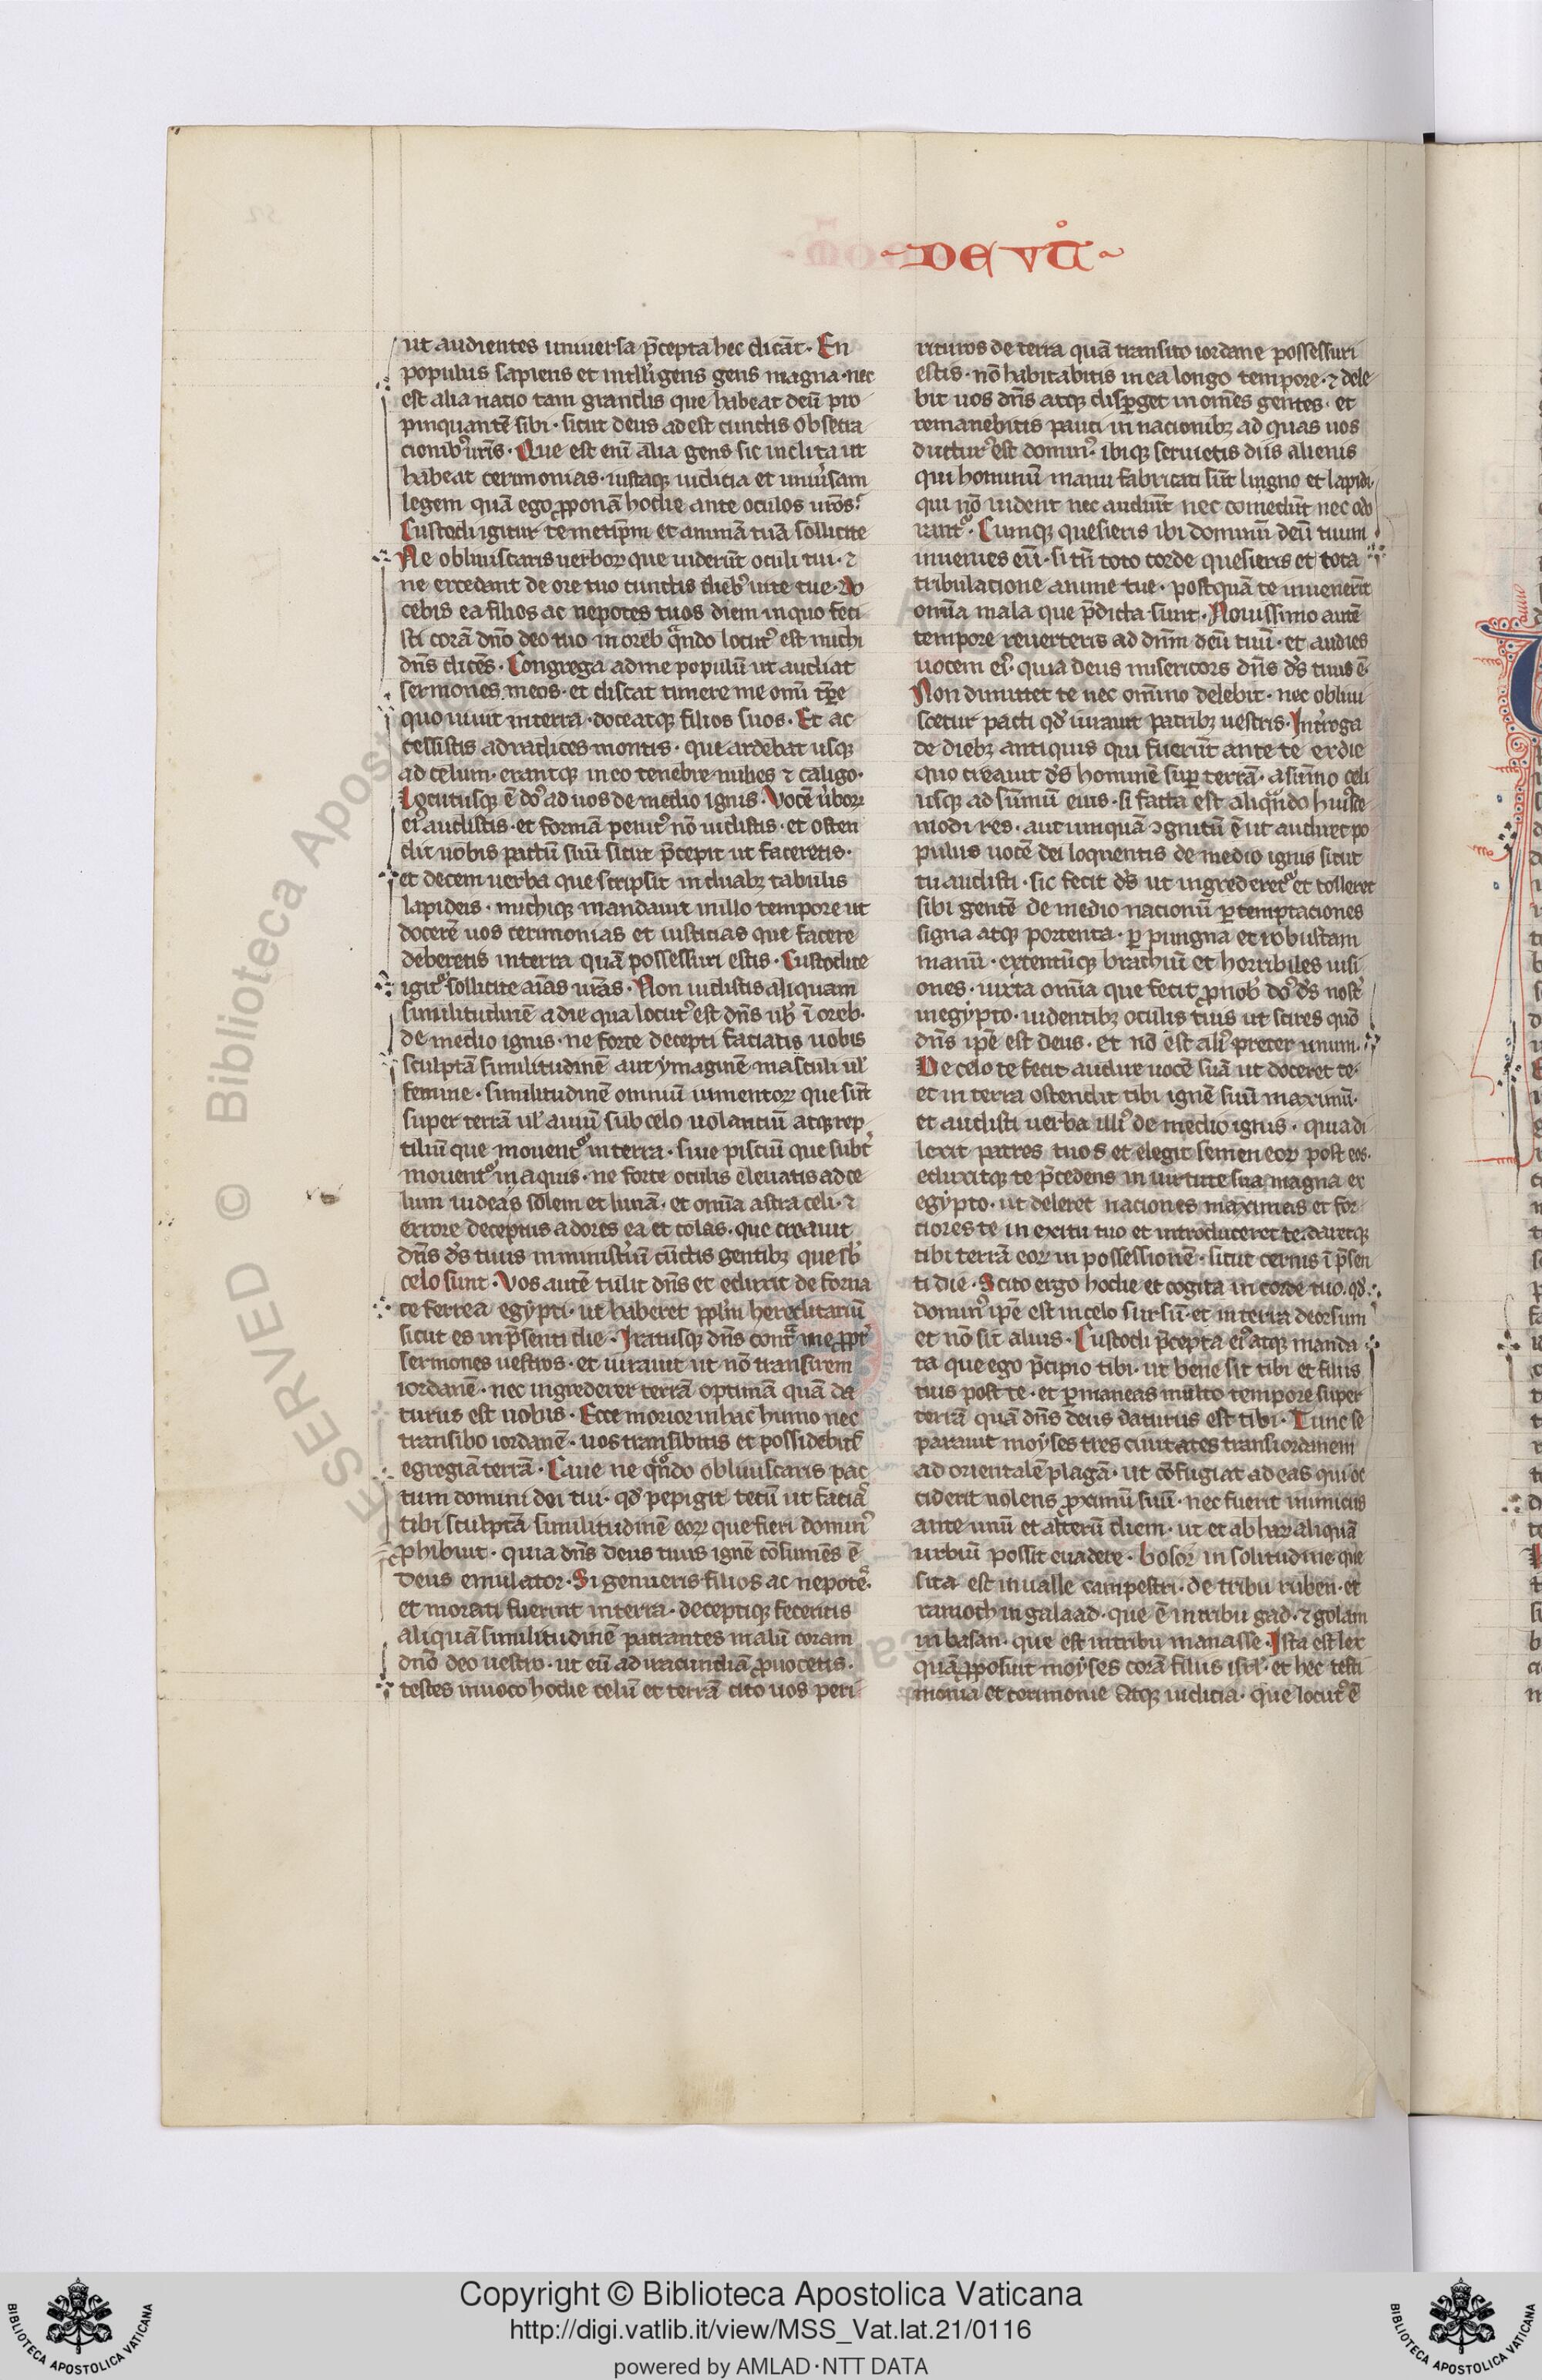 ·DE VT̊·
ut audientes uniuersa p̄cepta hec dicāt· En
populus sapiens et intlligens gens magna· nec
est alia natio tam grandis que habeat deū pro
pinquantē sibi· sicut deus adest cunctis obsecra
cionib; ur̄is· Que est enī alia gens sic inclita ut
habeat cerimonias· iustaq; iudicia et uniu'sam
legem quā ego ꝓponā hodie ante oculos ur̄os·
Custodi igitur temetip̄m et animā tuā sollicite
Ne obliuiscaris uerboꝝ que uiderūt oculi tui· ⁊
ne excedant de ore tuo cunctis dieb; uite tue· Do
cebis ea filios ac nepotes tuos diem in quo feti
sti corā dn̄o deo tuo in oreb qn̄do locut' est michi
dn̄s dicēs· Congrega ad me populū ut audiat
sermones meos· et discat timere me om̄i tp̄re
quo uiuit in terra· doceatq; filios suos· Et ac
cessistis ad radices montis· qui ardebat usq;
ad celum· erantq; in eo tenebre nubes ⁊ caligo·
Locutusq; ē do' ad uos de medio ignis· Vocē u'boꝝ
ei' audistis· et formā penit' nō uidistis· et osten
dit uobis pactū suū sicut p̄cepit ut faceretis·
et decem uerba que scripsit in duab; tabulis
lapideis· michiq; mandauit in illo tempore ut
docerē uos cerimonias et iusticias que facere
deberetis in terra quā possessuri estis· Custodite
igit' sollicite aīas ur̄as· Non uidistis aliquam
similitudinē a die qua locut' est dn̄s ub' ī oreb·
de medio ignis· ne forte decepti faciatis uobis
sculptā similitudinē aut ymaginē masculi ul'
femine· similitudinē omniū iumentoꝝ que sūt
super terrā ul' auiū sub celo uolanciū atq; rep
tiliū que mouent' in terra· siue pisciū que subt'
mouent' in aquis· ne forte oculis eleuatis ad ce
lum uideas solem et lunā· et om̄ia astra celi· ⁊
errore deceptus adores ea et colas· que creauit
dn̄s d's tuus in ministiū cūctis gentib; que sb'
celo sunt· Vos autē tulit dn̄s et eduxit de forna
ce ferrea egypti· ut haberet pp̄lm hereditariū
sicut es in p̄senti die· Iratusq; dn̄s cont̄ me ꝓpt'
sermones uestros· et iurauit ut nō transirem
iordanē· nec ingrederer terrā optimā quā da
turus est uobis· Ecce morior in hac humo nec
transibo iordanē· uos transibitis et possidebit'
egregiā terrā· Caue ne qn̄do obliuiscaris pac
tum domini dei tui· qd' pepigit tecū ut facia'
tibi sculptā similitudinē eoꝝ que fieri domin'
ꝓhibuit· quia dn̄s deus tuus ignē cōsumēs ē
deus emulator· Si genueris filios ac nepote'·
et morati fuerint in terra· deceptiq; feceritis
aliquā similitudinē patrantes malū coram
dn̄o deo uestro· ut eū ad iracundiā ꝓuocetis·
testes inuoco hodie celū et terrā cito uos peri
rituros de terra quā transito iordane possessuri
estis· nō habitabitis in ea longo tempore· ⁊ dele
bit uos dn̄s atq; disꝑget in om̄es gentes· et
remanebitis pauci in nacionib; ad quas uos
ductur' est domin'· ibiq; seruietis diis alienis
qui hominū manu fabricati sūt lingno et lapidi·
qui nō uident nec audiūt nec comedūt nec odo
rant'· Cumq; quesieris ibi dominū deū tuum
inuenies eū· si tn̄ toto corde quesieris et tota
tribulacione anime tue· postquā te inuenerīt
om̄ia mala que p̄dicta sunt· Nouissimo autē
tempore reuerteris ad dn̄m deū tuū· et audies
uocem ei'· quia deus misericors dn̄s d's tuus ē·
Non dimittet te nec om̄ino delebit· nec obliui
scetur pacti qd' iurauit patrib; uestris· Int'roga
de dieb; antiquis qui fuerūt ante te ex die
quo creauit d's hominē suꝑ terrā· a sūmo celi
usq; ad sūmū eius· si facta est aliqn̄do hui'sce
modi res· aut umquā ꝯgnitū ē ut audiret po
pulus uocē dei loquentis de medio ignis sicut
tu audisti· sic fecit d's ut ingrederet' et tolleret
sibi gentē de medio nacionū ꝑ temptaciones
signa atq; portenta· ꝑ pungna et robustam
manū· extentūq; brachiū et horribiles uisi
ones· iuxta om̄ia que fecit ꝓ nob' do' d's nost'
in egypto· uidentib; oculis tuis ut scires quō
dn̄s ip̄e est deus· et nō est ali' preter unum·
De celo te fecit audire uocē suā ut doceret te·
et in terra ostendit tibi ignē suū maximū·
et audisti uerba illi' de medio ignis· quia di
lexit patres tuos et elegit semen eoꝝ post eos·
eduxitq; te p̄cedens in uirtute sua magna ex
egypto· ut deleret naciones maximas et for
ciores te in exitu tuo et introduceret te· daretq;
tibi terrā eoꝝ in possessionē· sicut cernis ī p̄sen
ti die· Scito ergo hodie et cogita in corde tuo· qd'
domin' ip̄e est in celo sursū· et in terra deorsum
et nō sit alius· Custodi p̄cepta ei' atq; manda
ta que ego p̄cipio tibi· ut bene sit tibi et filiis
tuis post te· et ꝑmaneas multo tempore super
terrā quā dn̄s deus daturus est tibi· Tunc se
parauit moyses tres ciuitates trans iordanem
ad orientalē plagā· ut cōfugiat ad eas qui oc
ciderit nolens ꝓximū suū· nec fuerit inimicus
ante unū et alterū diem· ut et ab haꝝ aliquā
urbiū possit euadere· bosor in solitudine que
sita est in ualle campestri· de tribu ruben· et
ramoth in galaad· que ē in tribu gad· ⁊ golam
in basan· que est in tribu manasse· Ista est lex
quā ꝓposuit moyses corā filiis isrl'· et hec testi
monia et cerimonie atq; iudicia· que locut' ē
Copyright © Biblioteca Apostolica Vaticana
http://digi.vatlib.it/view/MSS_Vat.lat.21/0116
powered by AMLAD·NTT DATA
BIBLIOTECA APOSTOLICA VATICANA
BIBLIOTECA APOSTOLICA VATICANA